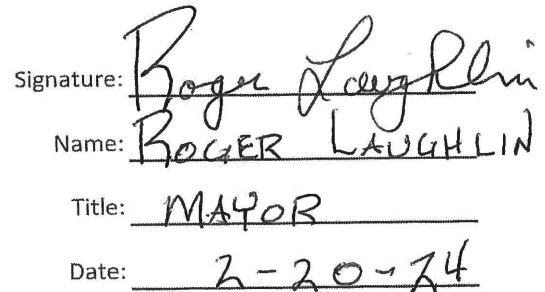 Signature: Roger Laughlin
Name: ROGER LAUGHLIN
Title: MAYOR
Date: 2-20-24